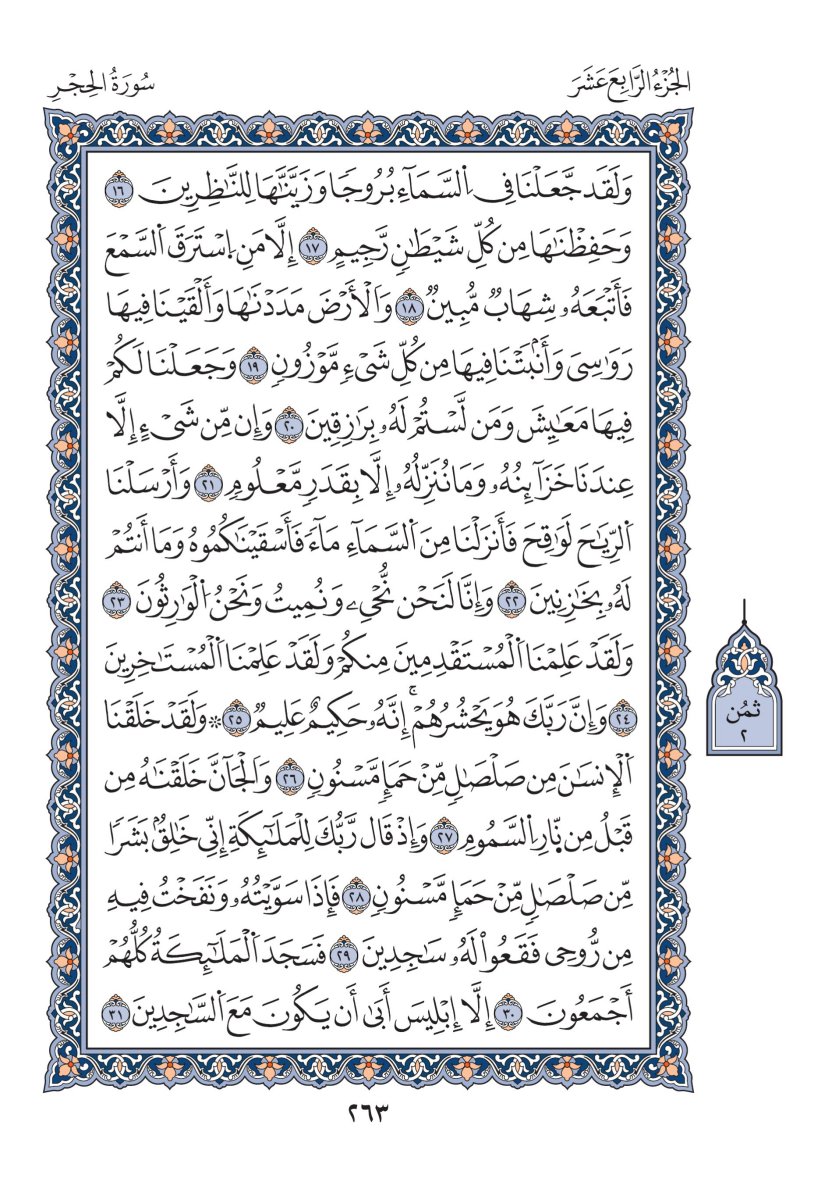 الجُزْءُ الرَّابِعَ عَشَرَ
سُورَةُ الحِجْرِ
وَلَقَد جَّعَلْنَا فِى اِ۬لسَّمَآءِ بُرُوجٗا وَزَيَّنَّٰهَا لِلنَّٰظِرِينَ ١٦
وَحَفِظْنَٰهَا مِن كُلِّ شَيْطَٰنٖ رَّجِيمٍ ١٧ إِلَّا مَنِ اِ۪سْتَرَقَ اَ۬لسَّمْعَ
فَأَتْبَعَهُۥ شِهَابٞ مُّبِينٞ ١٨ وَالْأَرْضَ مَدَدْنَٰهَا وَأَلْقَيْنَا فِيهَا
رَوَٰسِيَ وَأَنۢبَتْنَا فِيهَا مِن كُلِّ شَيْءٖ مَّوْزُونٖ ١٩ وَجَعَلْنَا لَكُمْ
فِيهَا مَعَٰيِشَ وَمَن لَّسْتُمْ لَهُۥ بِرَٰزِقِينَ ٢٠ وَإِن مِّن شَيْءٍ إِلَّا
عِندَنَا خَزَآئِنُهُۥ وَمَا نُنَزِّلُهُۥ إِلَّا بِقَدَرٖ مَّعْلُومٖ ٢١ وَأَرْسَلْنَا
اَ۬لرِّيَٰحَ لَوَٰقِحَ فَأَنزَلْنَا مِنَ اَ۬لسَّمَآءِ مَآءٗ فَأَسْقَيْنَٰكُمُوهُ وَمَا أَنتُمْ
لَهُۥ بِخَٰزِنِينَ ٢٢ وَإِنَّا لَنَحْن نُّحْيِۦ وَنُمِيتُ وَنَحْنُ اُ۬لْوَٰرِثُونَ ٢٣
وَلَقَدْ عَلِمْنَا اَ۬لْمُسْتَقْدِمِينَ مِنكُمْ وَلَقَدْ عَلِمْنَا اَ۬لْمُسْتَٰخِرِينَ
٢٤ وَإِنَّ رَبَّكَ هُوَ يَحْشُرُهُمْۚ إِنَّهُۥ حَكِيمٌ عَلِيمٞ ٢٥ ۞ وَلَقَدْ خَلَقْنَا
اَ۬لْإِنسَٰنَ مِن صَلْصَٰلٖ مِّنْ حَمَإٖ مَّسْنُونٖ ٢٦ وَالْجَآنَّ خَلَقْنَٰهُ مِن
قَبْلُ مِن نّ۪ارِ اِ۬لسَّمُومِ ٢٧ وَإِذْ قَال رَّبُّكَ لِلْمَلَٰٓئِكَةِ إِنِّي خَٰلِقُۢ بَشَرٗا
مِّن صَلْصَٰلٖ مِّنْ حَمَإٖ مَّسْنُونٖ ٢٨ فَإِذَا سَوَّيْتُهُۥ وَنَفَخْتُ فِيهِ
مِن رُّوحِى فَقَعُواْ لَهُۥ سَٰجِدِينَ ٢٩ فَسَجَدَ اَ۬لْمَلَٰٓئِكَةُ كُلُّهُمْ
أَجْمَعُونَ ٣٠ إِلَّا إِبْلِيسَ أَبَىٰ أَن يَكُونَ مَعَ اَ۬لسَّٰجِدِينَ ٣١
ثمُن
٢
٢٦٣